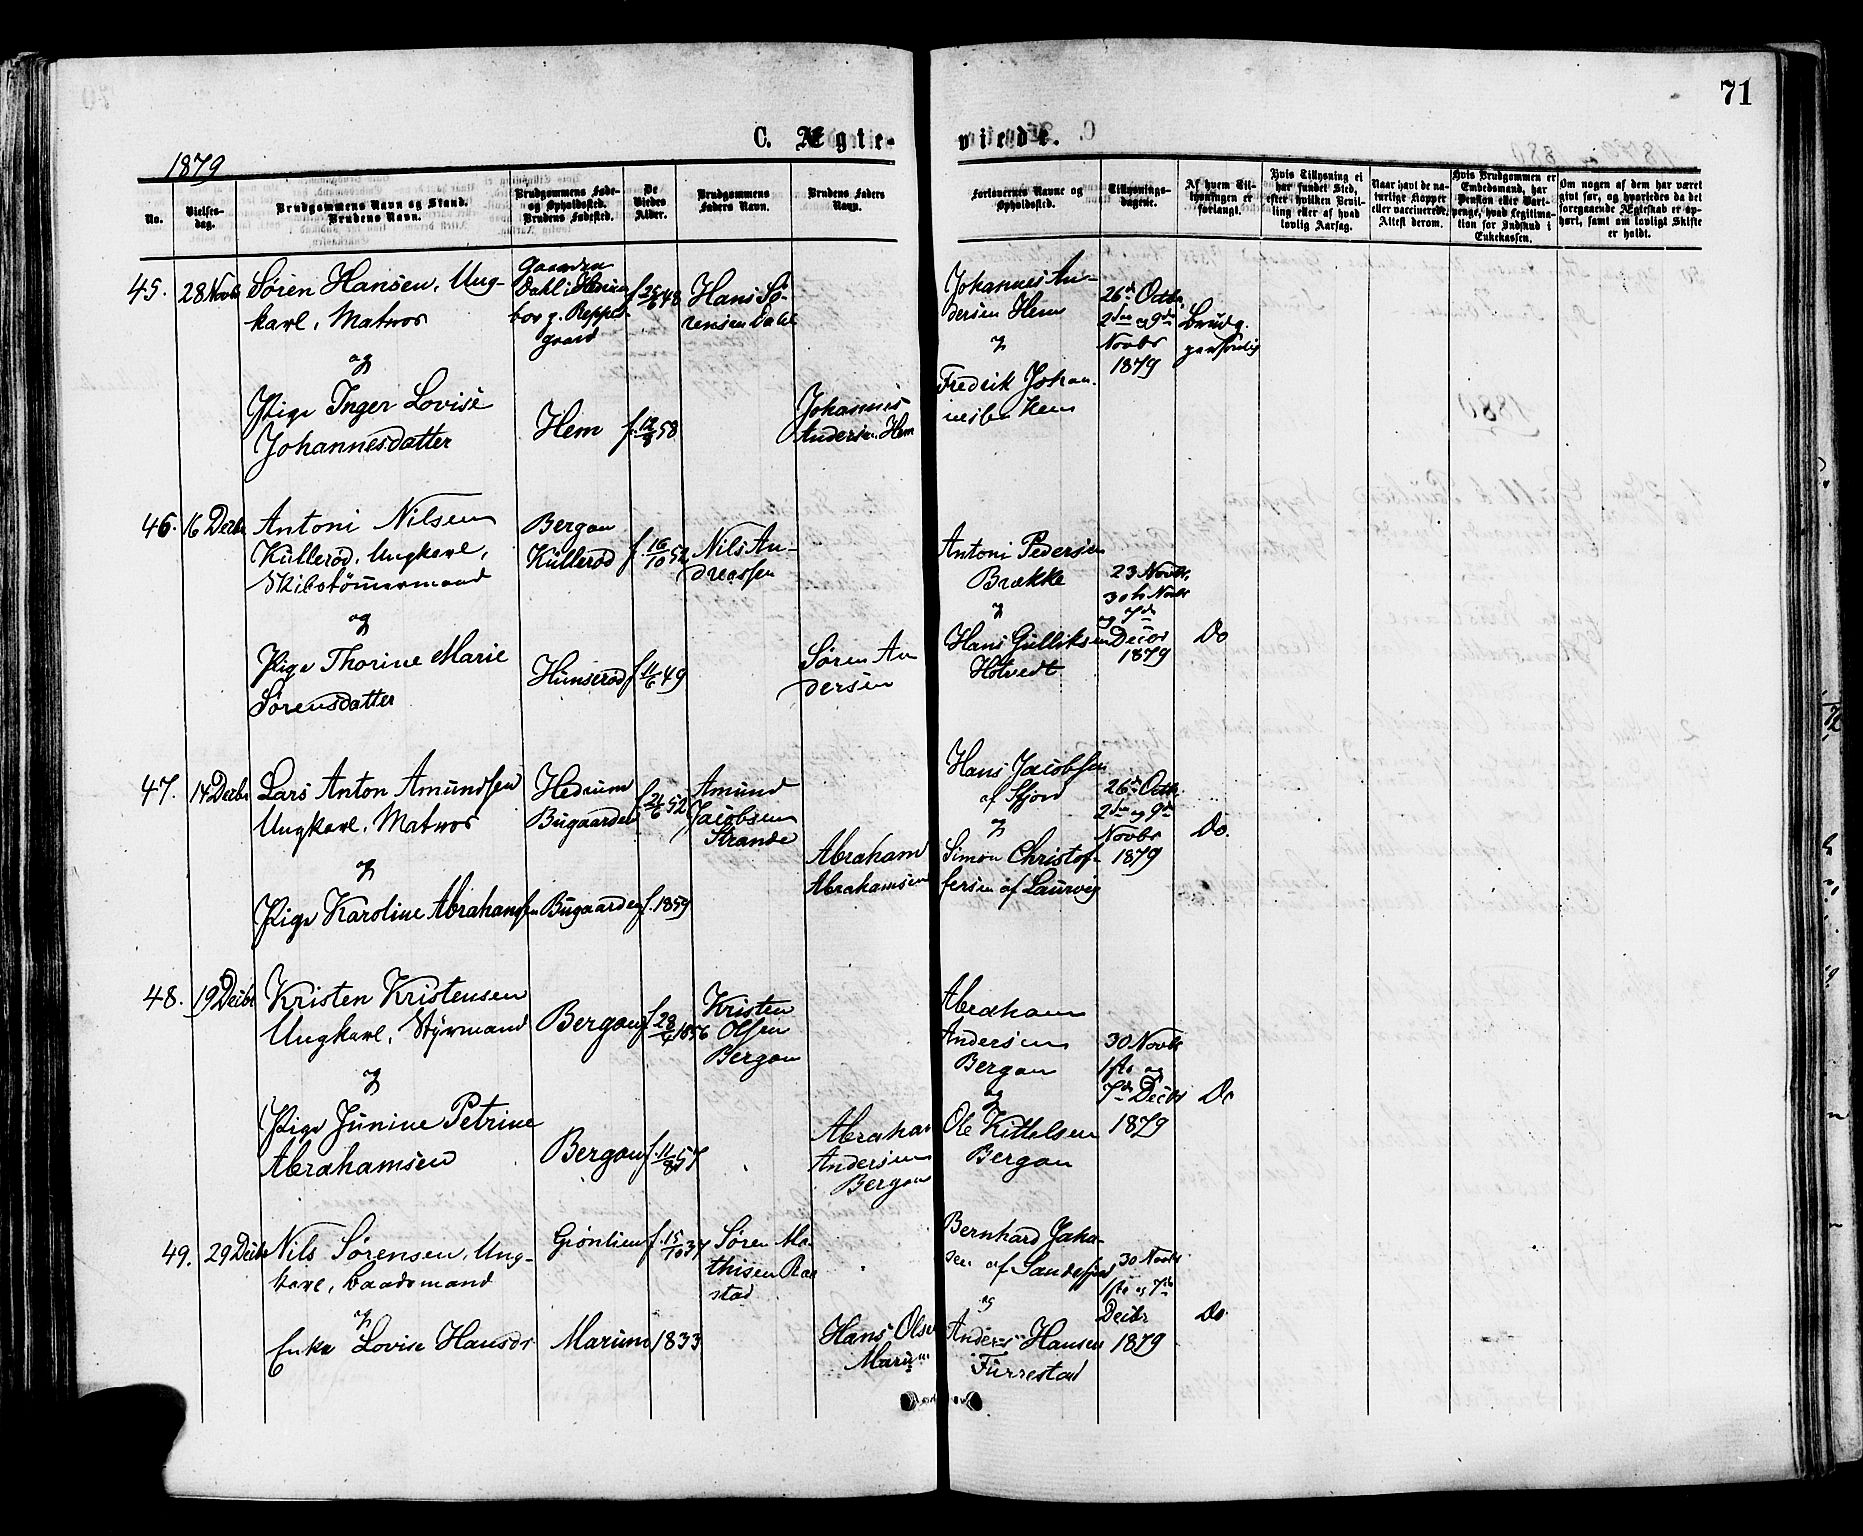 71
C. Ægte-
viede.
1879
No.
Vielses-
dag.
Brudgommens Navn og Stand.
Brudens Navn.
Brudgommens Føde-
og Opholdssted.
Brudens Fødested.
De
Viedes
Alder.
Brudgommens
Faders Navn.
Brudens Faders
Navn.
Forlovernes Navne og
Opholdssted.
Tillysnings-
dagene.
Af hvem Til-
lysningen er
forlangt.
Hvis Tillysning ei
har fundet Sted,
efter hvilken Bevil-
ling eller af hvad
lovlig Aarsag.
Naar havt de na-
turlige Kopper
eller vaccinerede.
Attest derom.
Hvis Brudgommen er
Embedsmand, har
Pension eller Vart-
penge, hvad Legitima-
tion for Indskud i
Enkekassen.
Om nogen af dem har været
givt før, og hvorledes da det
foregaaende Ægteskab er op-
hørt, samt om lovligt Skifte
er holdt.
45. 28 Novb
Søren Hansen, Ung-
karl, Matros
og
Pige Inger Lovise
Johannesdatter
Dahl i
gaard
Hem
f. 25/6 48
f. 12/8 58
Hans Sø-
rensen Dahl
Johannes
Andersen Hem
Johannes An-
dersen Hem
og
Fredrik Johan-
nesen Hem
26de Octbr,
2den og 9de
Novbr
1879
Brudg.
personlig
46. 16 Decbr
Antoni Nilsen
Küllerød, Ungkarl,
Skibstømmermand
og
Pige Thorine Marie
Sørensdatter
Bergan
Küllerød
Hünserød
f. 16/10 52
f. 11/6 49
Nils An-
dreassen
Søren An
dersen
Antoni Pedersen
Brække
og
Hans Gülliksen
Hotvedt
23 Novbr,
30te Novbr
og 7de
Decbr
1879
Do
47. 14 Decbr
Lars Anton Amündsen
Ungkarl, Matros
og
Pige Karoline Abrahamsen
Hedrum
Bugaarden
Bügaarden
f. 21/6 52
f. 1859
Amund
Jacobsen
Strande
Abraham
Abrahamsen
Hans Jacobsen
af Fjord
og
Simon Christof-
fersen af Laurvig
26de Octbr,
2den og 9de
Novbr
1879
Do.
48. 19 Decbr
Kristen Kristensen
Ungkarl, Styrmand
og
Pige Jünine Petrine
Abrahamsen
Bergan
Bergan
f. 28/4 1856
f. 11/8 57
Kristen
Olsen
Bergan
Abraham
Andersen
Bergan
Abraham
Andersen
Bergan
og
Ole Kittelsen
Bergan
30 Novbr
1ste og
7de Decbr
1879
Do
49. 29 Decbr
Nils Sørensen, Ung-
karl, baadsmand
og
Enke Lovise Hansdr
Grønlien
Marum
f. 15/10 37
1833
Søren Ma-
thisen Raa
stad
Hans Olsen
Marum
Bernhard Jaha-
sen af Sandefjord
og
Anders Hansen
Fürrestad
30 Novbr
1ste og 7de
Decbr
1879
Do.